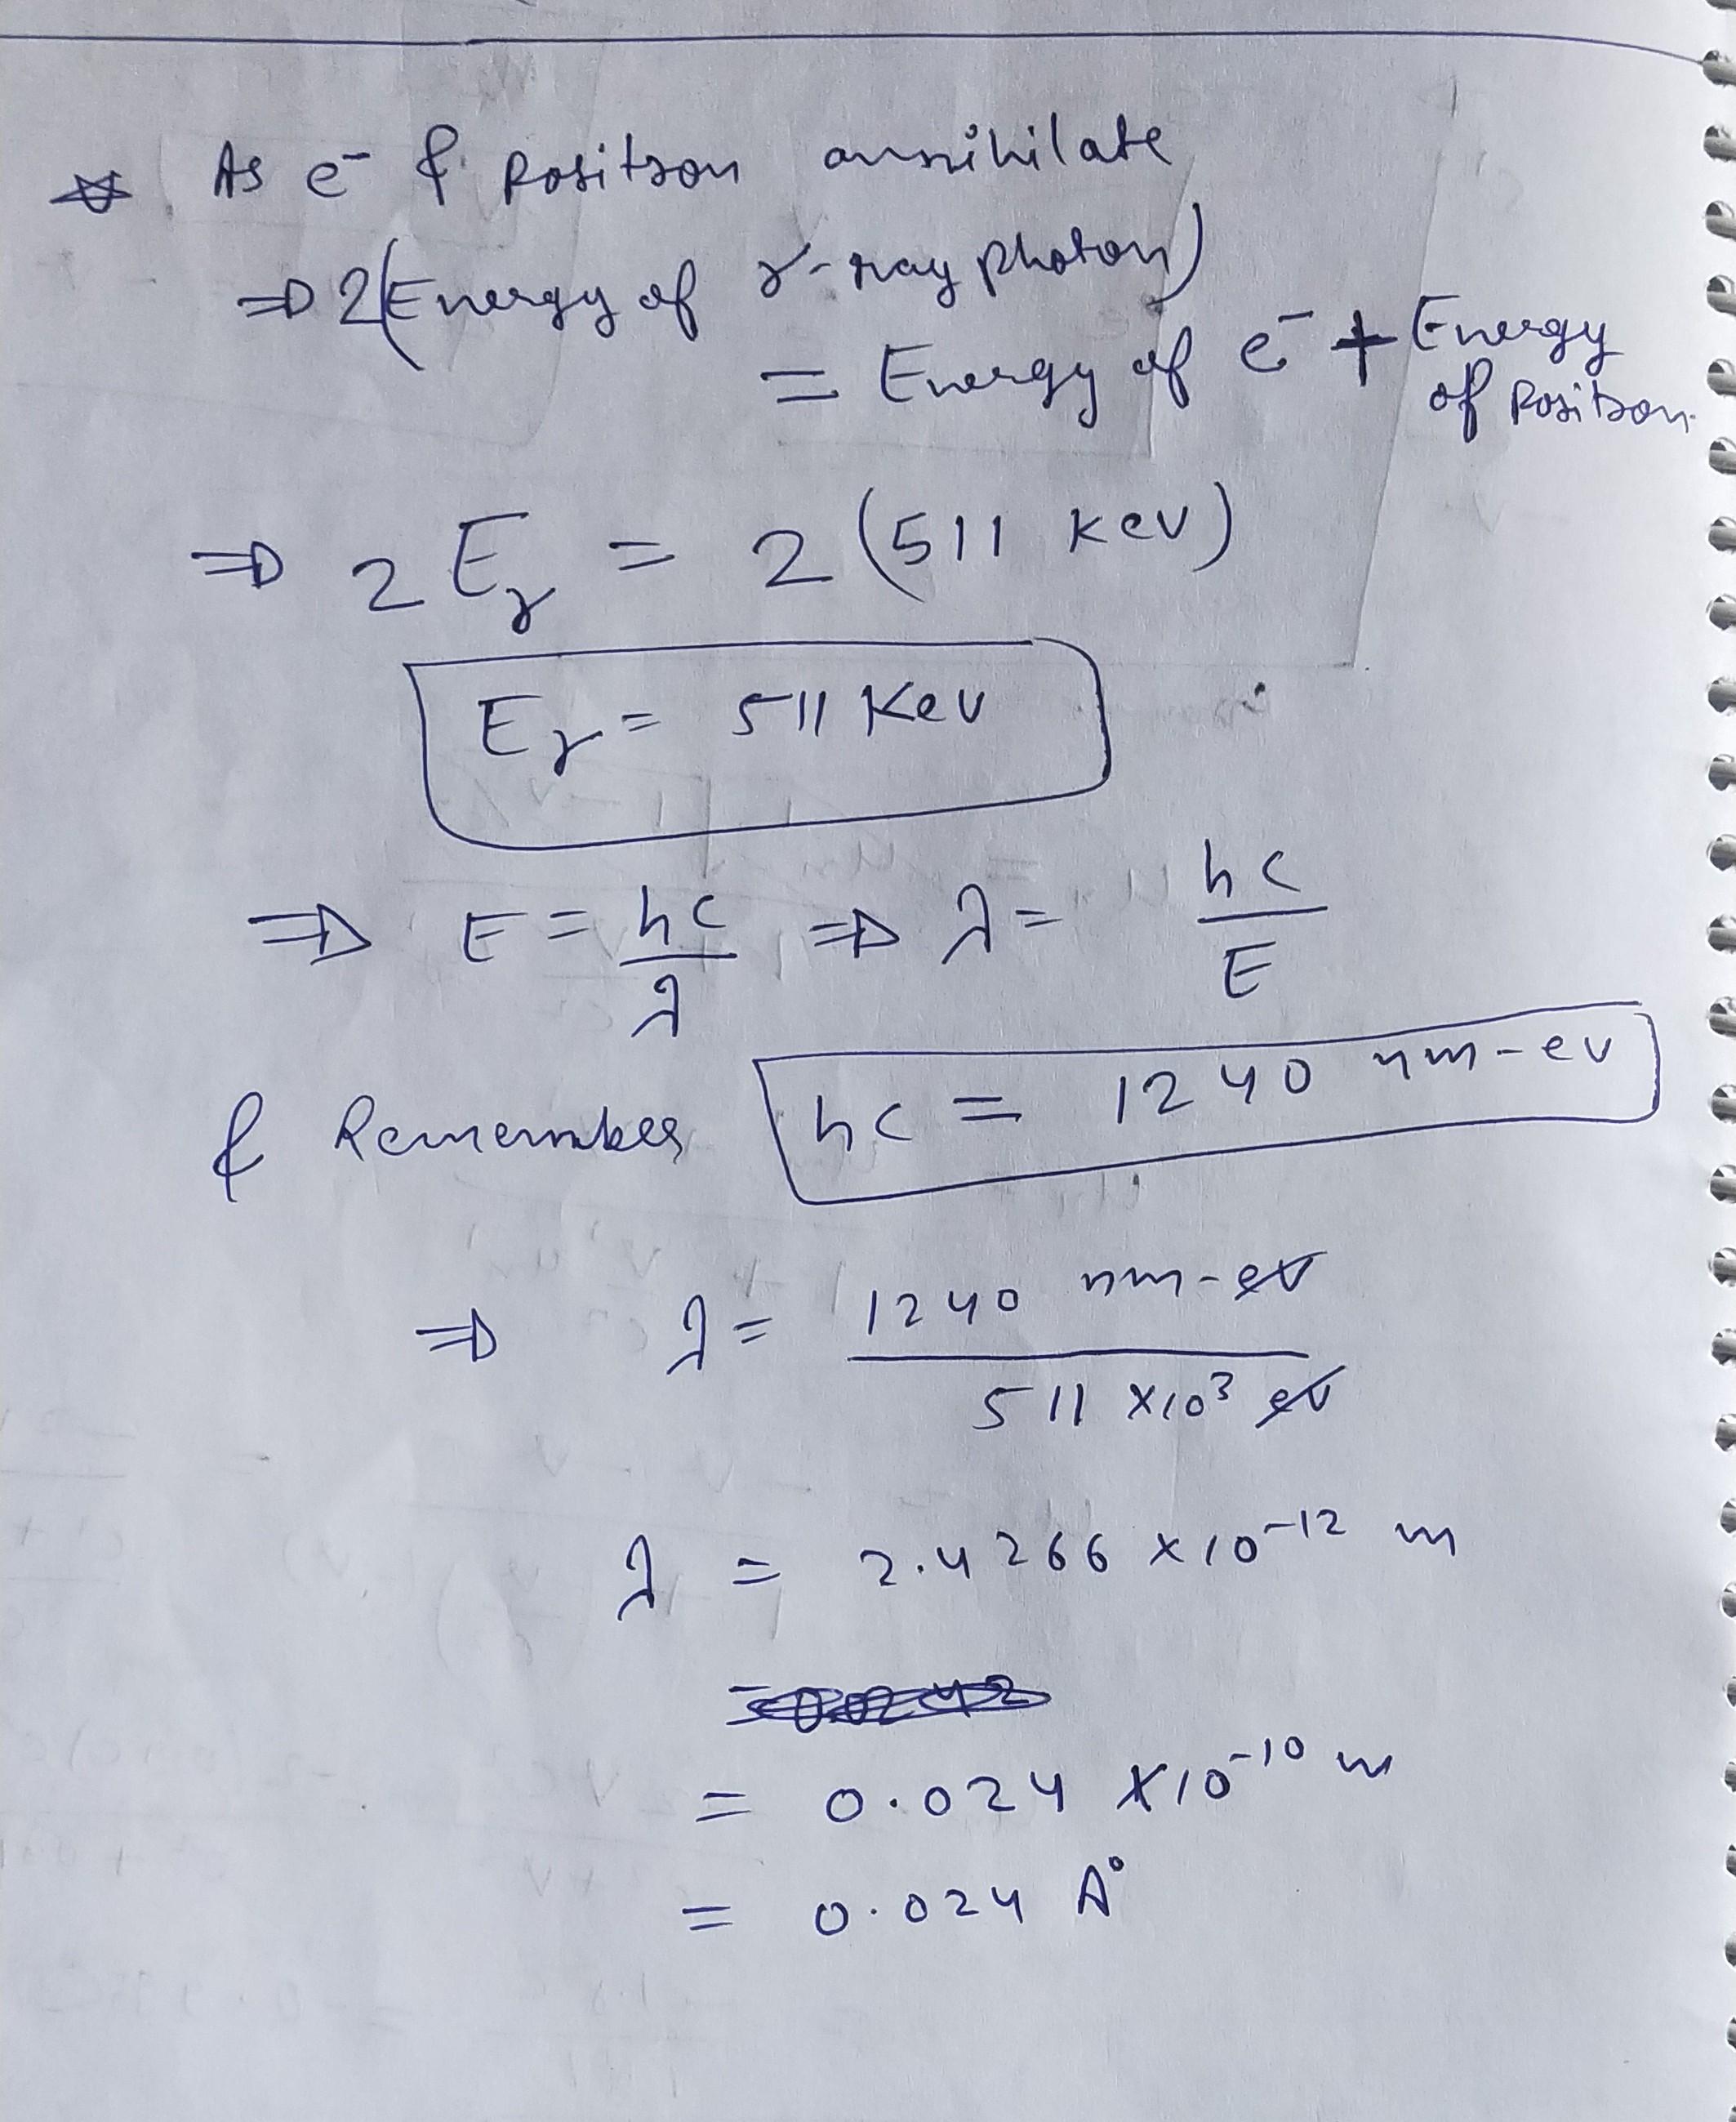 As e⁻ & positron annihilate
⇒ 2(Energy of γ-ray photon)
= Energy of e⁻ + Energy of positron.
⇒ 2 Eγ = 2 (511 kev)
Eγ = 511 Kev
⇒ E = hc/λ ⇒ λ = hc/E
& Remember hc = 1240 nm-ev
⇒ λ = 1240 nm-ev / 511 ×10³ ev
λ = 2.4266 ×10⁻¹² m
= 0.024 ×10⁻¹⁰ m
= 0.024 A°